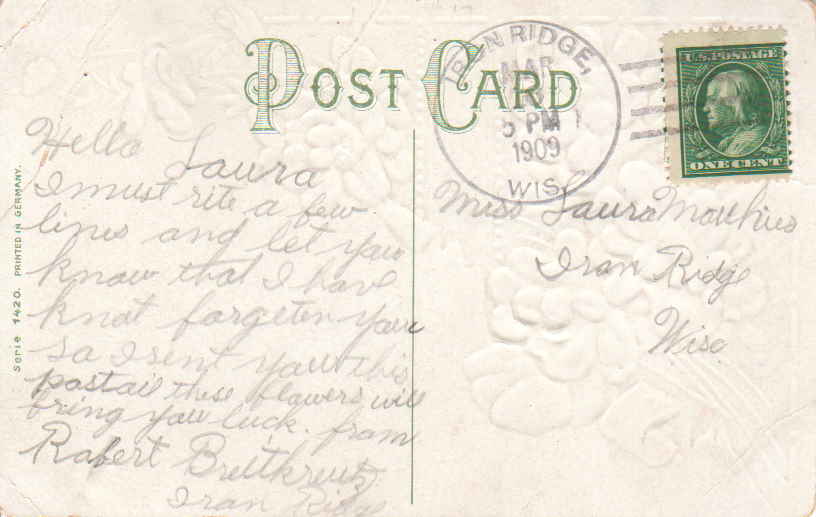 POST CARD
IRON RIDGE,
MAR
5 PM
1909
WIS.
U.S. POSTAGE
ONE CENT
Serie 1420. PRINTED IN GERMANY.
Hello Laura
I must rite a few
lines and let yow
know that I have
knot forgeten your
so I sent your this
postail these flowers will
bring yow luck. from
Robert Breitkreutz
Iron Ridge
Miss Laura
Iron Ridge
Wisc